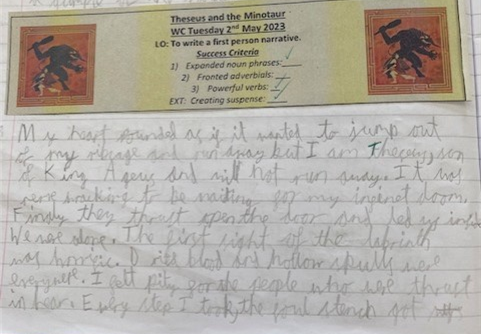 Theseus and the Minotaur
WC Tuesday 2nd May 2023
LO: To write a first person narrative.
Success Criteria
1) Expanded noun phrases:
2) Fronted adverbials:
3) Powerful verbs:
EXT: Creating suspense:
My heart pounded as if it wanted to jump out
of my ribcage and run away but I am Theseus, son
of King Ageus and will not run away. It was
nerve wracking to be waiting for my iminent doom.
Finaly they thrust open the door and led us inside
We were alone. The first sight of the labrinth
was horrific. Dried blood and hollow skulls were
everywhere. I felt pity for the people who were thrust
in hear. Every step I took, the foul stench got